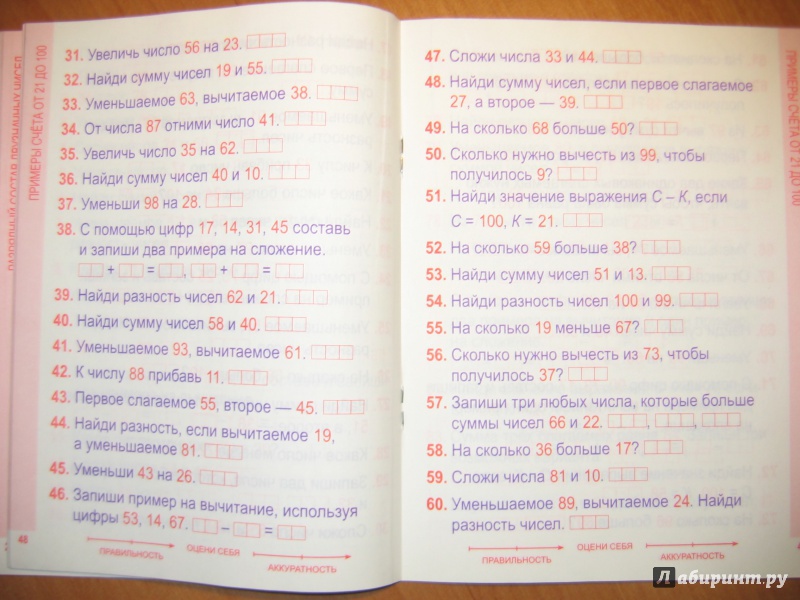 ПРИМЕРЫ СЧЁТА ОТ 21 ДО 100
31. Увеличь число 56 на 23.
32. Найди сумму чисел 19 и 55.
33. Уменьшаемое 63, вычитаемое 38.
34. От числа 87 отними число 41.
35. Увеличь число 35 на 62.
36. Найди сумму чисел 40 и 10.
37. Уменьши 98 на 28.
38. С помощью цифр 17, 14, 31, 45 составь
и запиши два примера на сложение.
+ = , + =
39. Найди разность чисел 62 и 21.
40. Найди сумму чисел 58 и 40.
41. Уменьшаемое 93, вычитаемое 61.
42. К числу 88 прибавь 11.
43. Первое слагаемое 55, второе — 45.
44. Найди разность, если вычитаемое 19,
а уменьшаемое 81.
45. Уменьши 43 на 26.
46. Запиши пример на вычитание, используя
цифры 53, 14, 67. – =
48
ПРАВИЛЬНОСТЬ
ОЦЕНИ СЕБЯ
АККУРАТНОСТЬ
47. Сложи числа 33 и 44.
48. Найди сумму чисел, если первое слагаемое
27, а второе — 39.
49. На сколько 68 больше 50?
50. Сколько нужно вычесть из 99, чтобы
получилось 9?
51. Найди значение выражения С – К, если
С = 100, К = 21.
52. На сколько 59 больше 38?
53. Найди сумму чисел 51 и 13.
54. Найди разность чисел 100 и 99.
55. На сколько 19 меньше 67?
56. Сколько нужно вычесть из 73, чтобы
получилось 37?
57. Запиши три любых числа, которые больше
суммы чисел 66 и 22. , ,
58. На сколько 36 больше 17?
59. Сложи числа 81 и 10.
60. Уменьшаемое 89, вычитаемое 24. Найди
разность чисел.
ПРАВИЛЬНОСТЬ
ОЦЕНИ СЕБЯ
АККУРАТНОСТЬ
ПРИМЕРЫ СЧЁТА ОТ 21 ДО 100
Лабиринт.ру